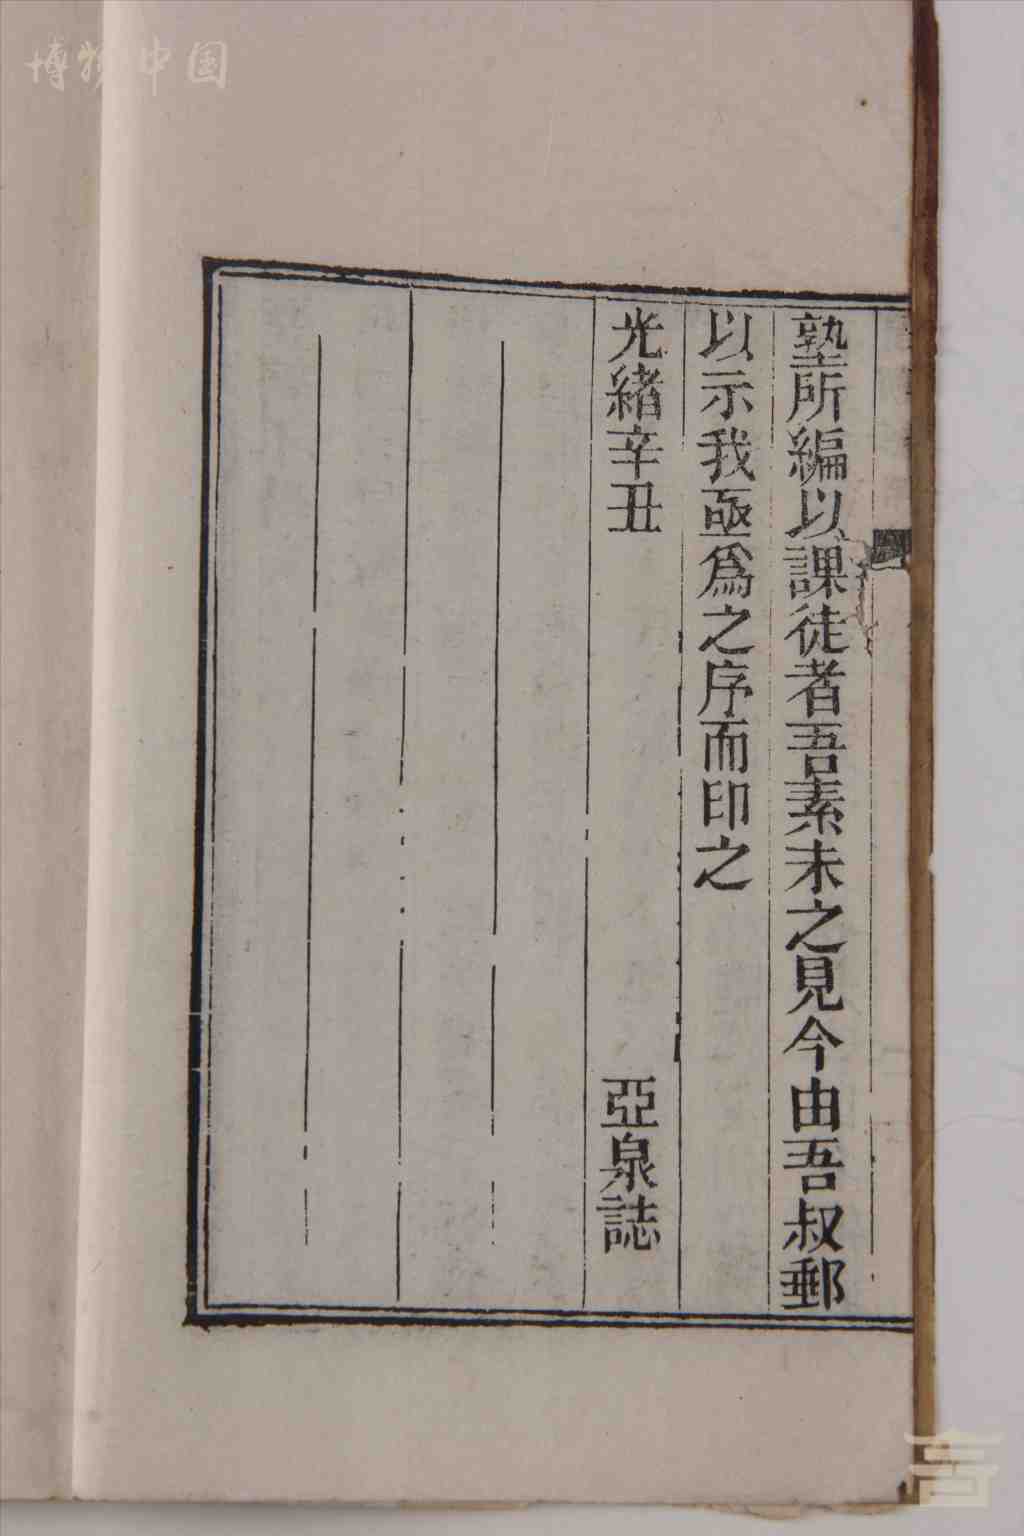 塾所編以課徒者吾素未之見今由吾叔郵
以示我亟爲之序而印之
光緒辛丑　亞泉誌
博物中国